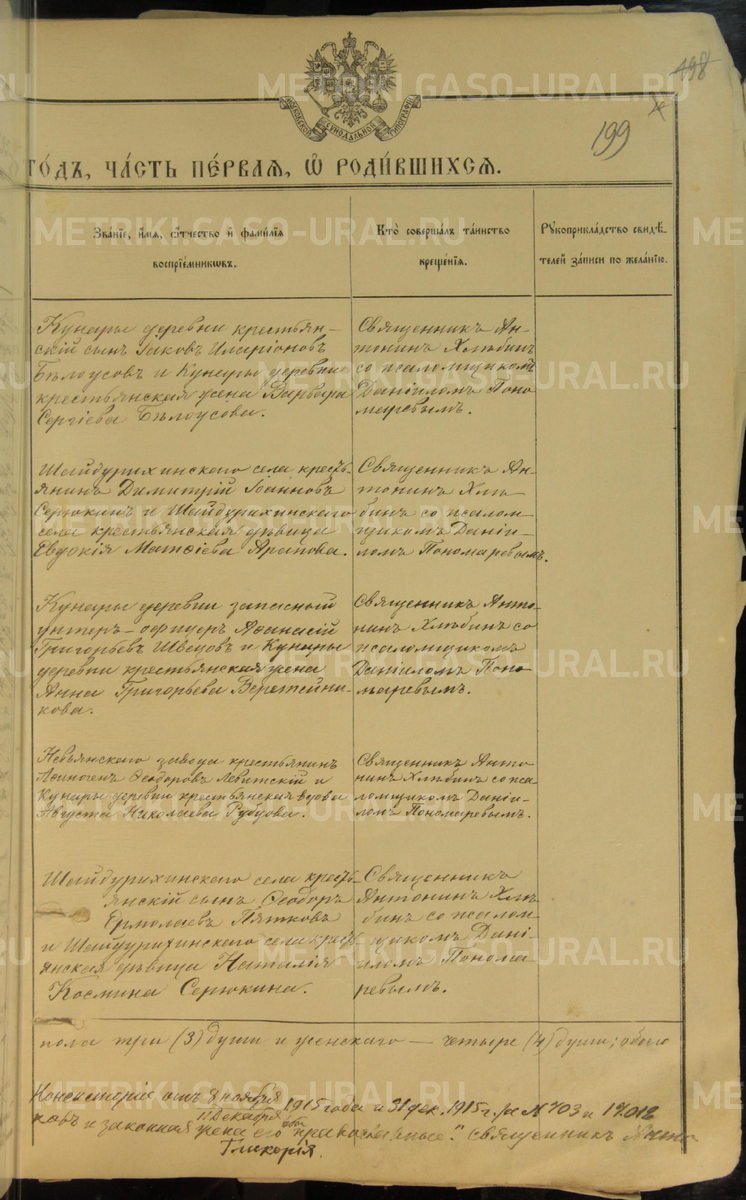 498
199
МОСКОВСКОЙ СѴНОДАЛЬНОЙ ТИПОГРАФІИ
ГО́ДЪ, ЧА́СТЬ ПЕ́РВАЯ, Ѡ РОДИ́ВШИХСЯ.
Зва́ніе, и́мя, о́тчество и́ фами́лія
воспріе́мникѡвъ.
Кто̀ соверша́лъ та́инство
креще́нія.
Рꙋкоприкла́дство свидѣ́-
телей за́писи по жела́нію.
Кунары деревни крестьян-
скій сынъ Іаковъ Иларіоновъ
Бѣлоусовъ и Кунары деревни
крестьянская жена Варвара
Сергіева Бѣлоусова.
Священникъ Ан-
тонинъ Хлѣбинъ
со псаломщикомъ
Даніиломъ Поно-
маревымъ.
Шайдурихинскаго села кресть-
янинъ Димитрій Іоанновъ
Серюкинъ и Шайдурихинскаго
села крестьянская дѣвица
Евдокія Матѳіева Арапова.
Священникъ Ан-
тонинъ Хлѣ-
бинъ со псалом-
щикомъ Даніи-
ломъ Пономаревымъ.
Кунары деревни запасный
унтеръ-офицеръ Аѳанасій
Григорьевъ Швецовъ и Кунары
деревни крестьянская жена
Анна Григорьева Веретенни-
кова.
Священникъ Анто-
нинъ Хлѣбинъ со
псаломщикомъ
Даніиломъ Поно-
маревымъ.
Невьянскаго завода крестьянинъ
Аѳиногенъ Ѳеодоровъ Левитскій и
Кунары деревни крестьянская вдова
Августа Николаева Рубцова.
Священникъ Анто-
нинъ Хлѣбинъ со пса-
ломщикомъ Даніи-
ломъ Пономаревымъ.
Шайдурихинскаго села кресть-
янскій сынъ Ѳеодоръ
Ермолаевъ Пятковъ
и Шайдурихинскаго села кресть-
янская дѣвица Наталія
Космина Серюкина.
Священникъ
Антонинъ Хлѣ-
бинъ со псалом-
щикомъ Дані-
иломъ Понома-
ревымъ.
пола три (3) души и женскаго — четыре (4) души; обоего
Консисторіи отъ 9 ноября 1915 года и 31 дек. 1915 г. за № 703 и 17012
11 декабря
ковъ и законная жена его Гликерія оба православные." Священникъ Анто
METRIKI.GASO-URAL.RU